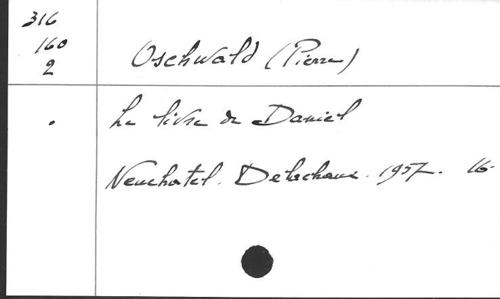 316
160
2
Oschwald (Pierre)
Le livre de Daniel
Neuchatel. Delachaux. 1957. 16.